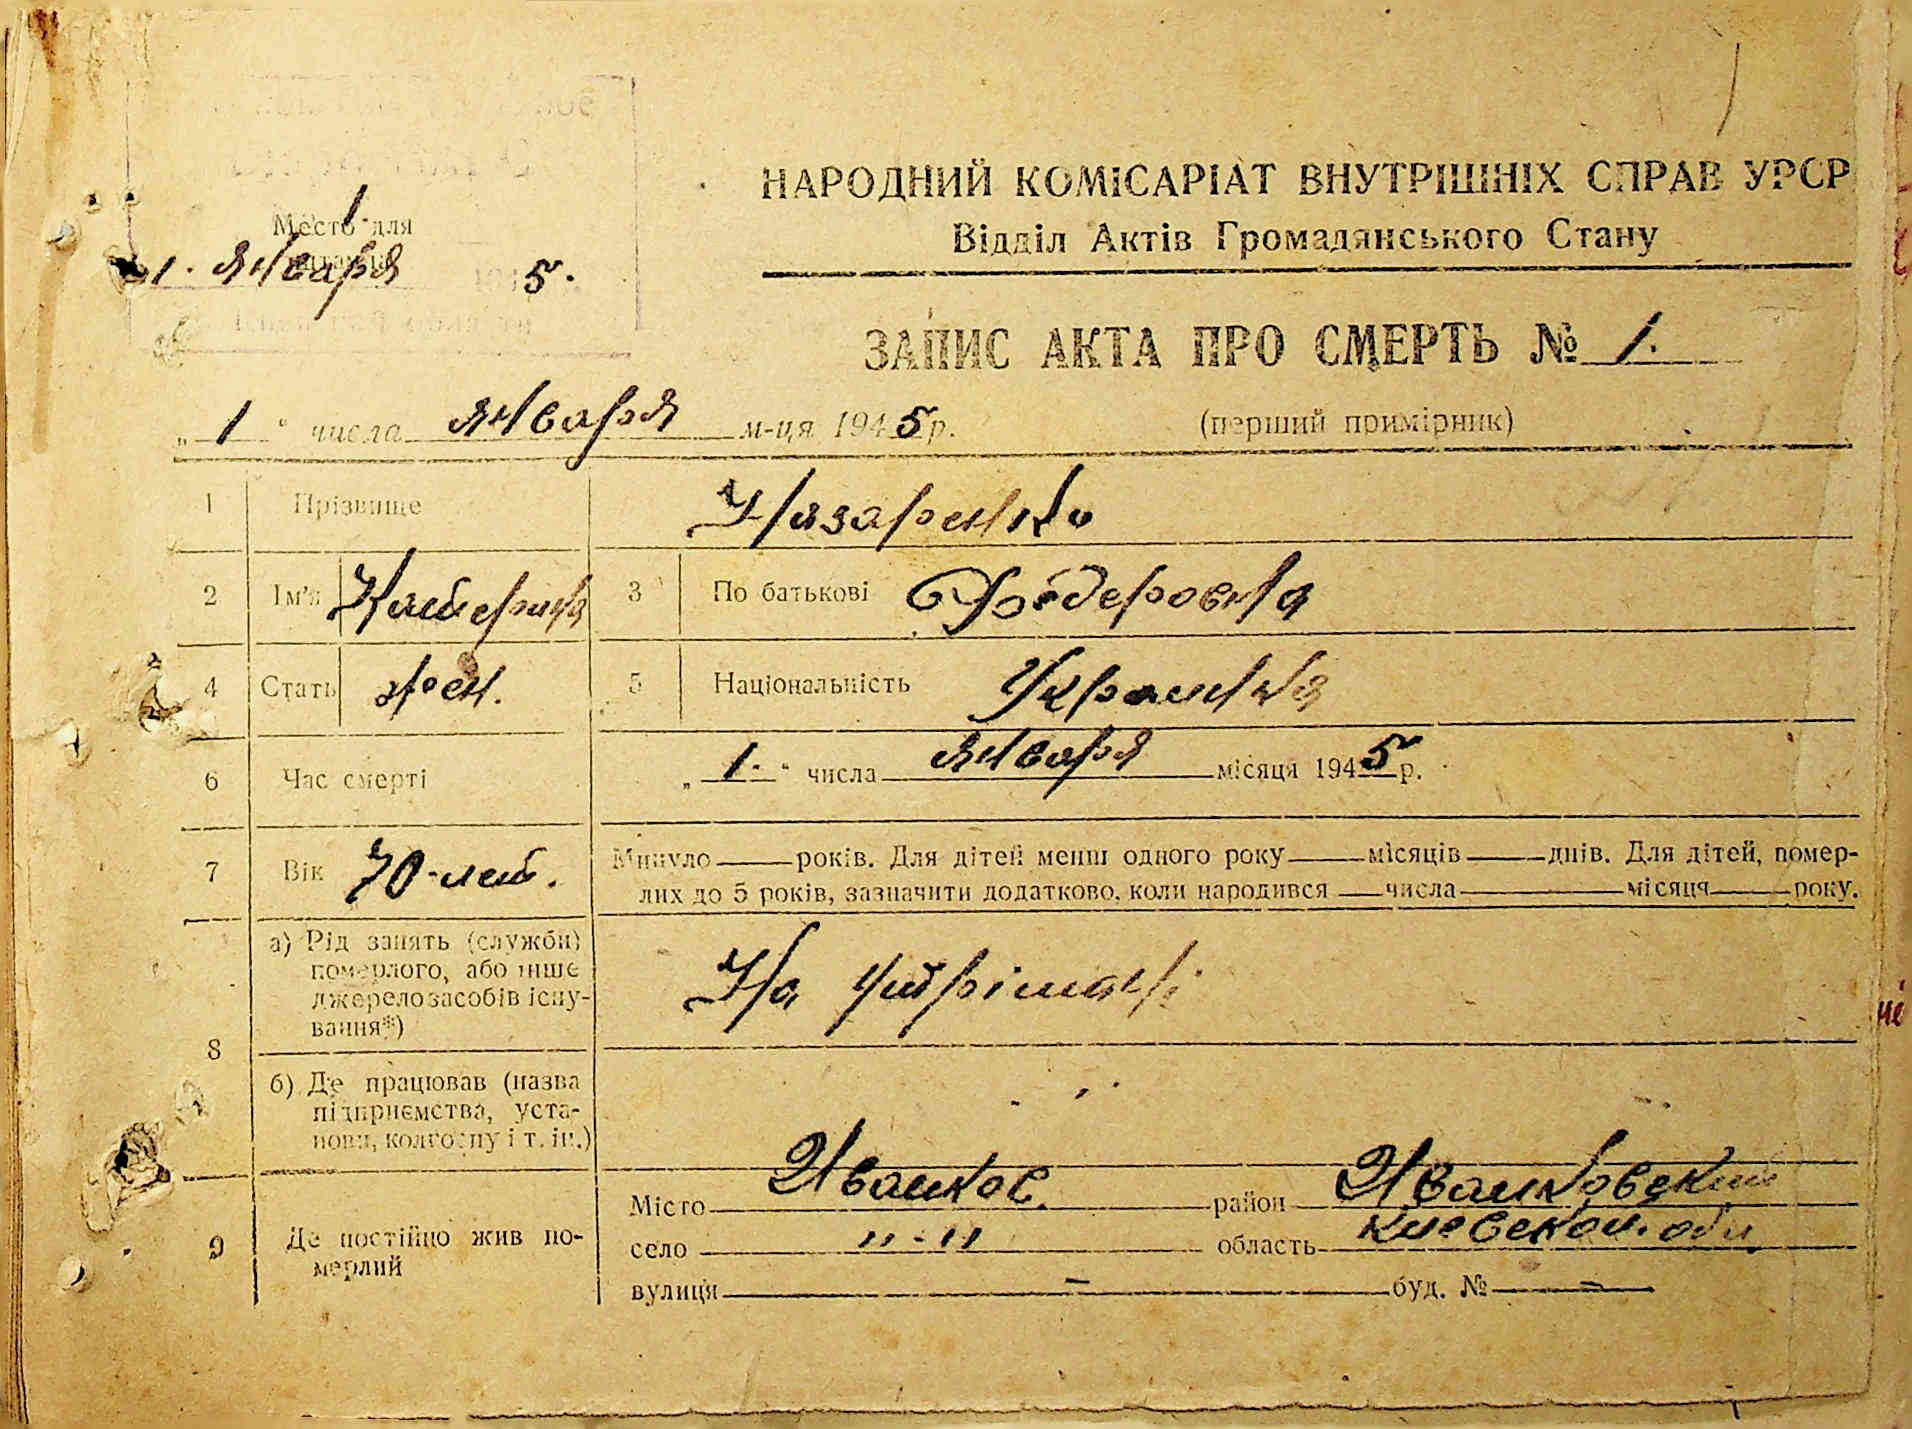 Место для
1.
1. января 5.
НАРОДНИЙ КОМІСАРІАТ ВНУТРІШНІХ СПРАВ УРСР
Відділ Актів Громадянського Стану
ЗАПИС АКТА ПРО СМЕРТЬ № 1.
„ 1 " числа января м-ця 1945 р. (перший примірник)
1 Прізвище Назаренко
2 Ім'я Катерина 3 По батькові Фёдеровна
4 Стать жен. 5 Національність Украинка
6 Час смерті „ 1. " числа января місяця 1945 р.
7 Вік 70-лет. Минуло ___ років. Для дітей менш одного року ___ місяців ___ днів. Для дітей, помер-
лих до 5 років, зазначити додатково, коли народився ___ числа ___ місяця ___ року.
8 а) Рід занять (служби)
померлого, або інше
джерело засобів існу-
вання*)
На утріманні
б) Де працював (назва
підприємства, уста-
нови, колгоспу і т. ін.)
- .
9 Де постійно жив по-
мерлий
Місто Иванков. район Иванковский
село "-" область Киевской. обл
вулиця – буд. № –